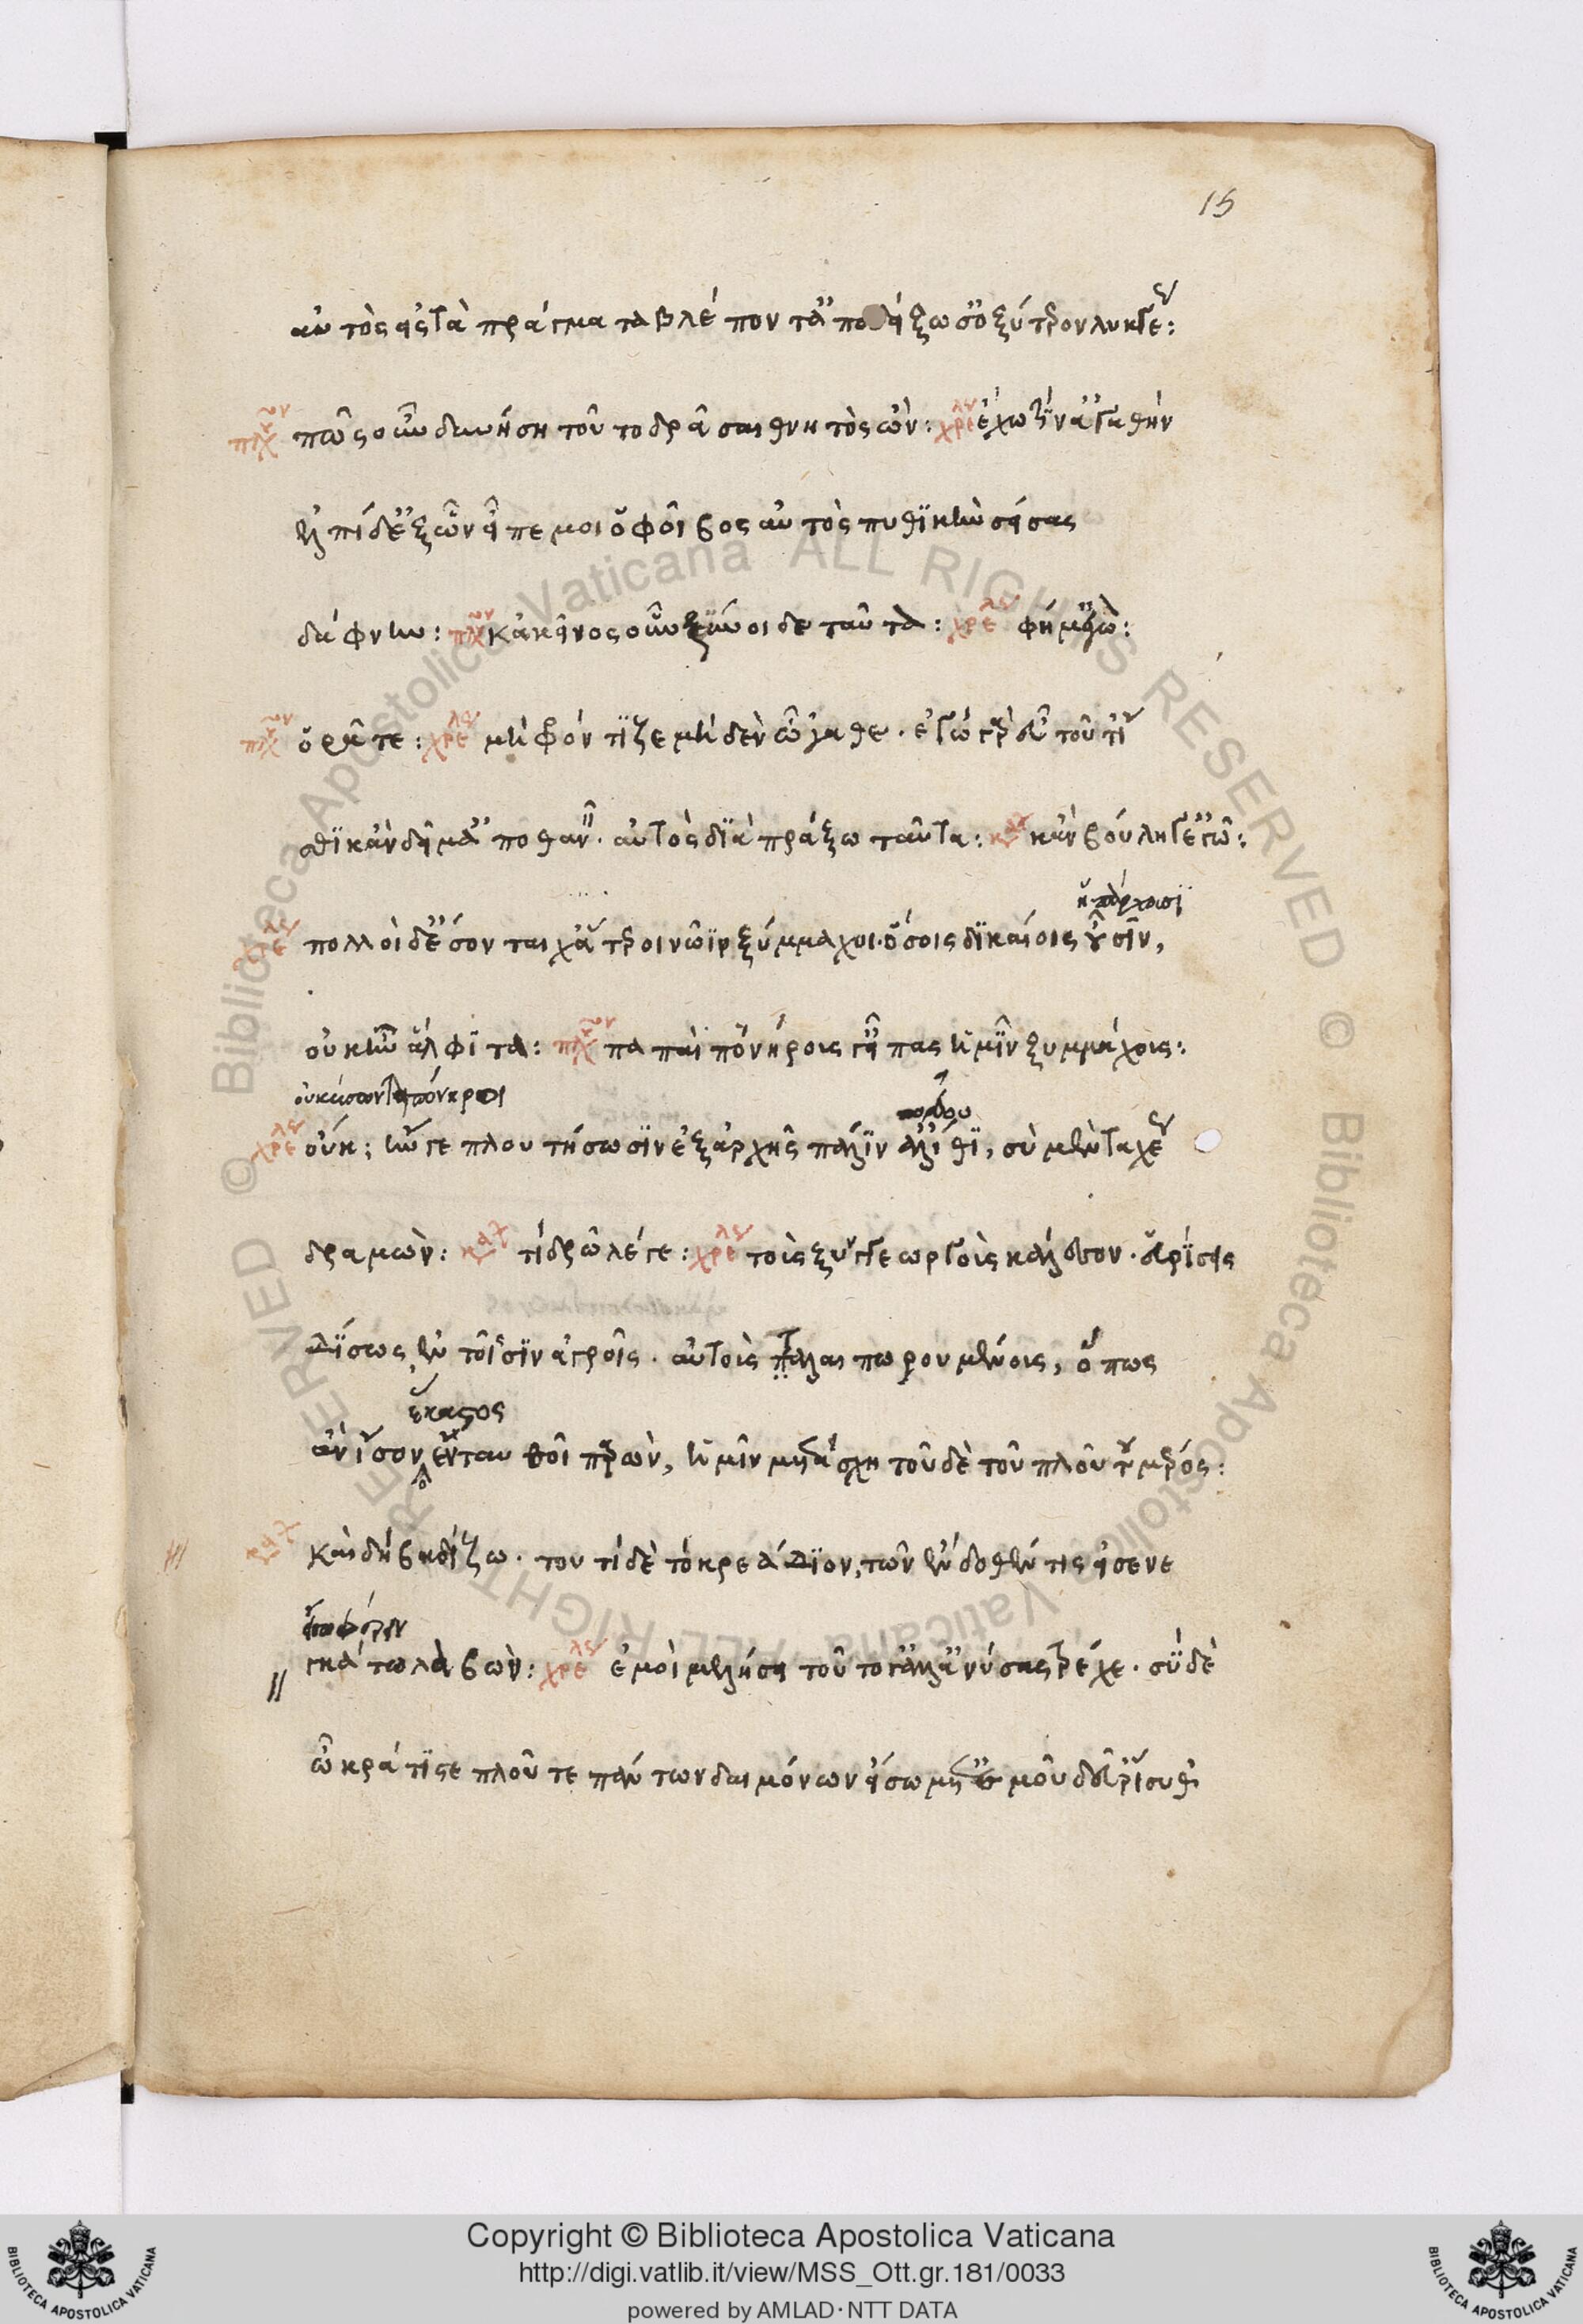 15
αὐτὸς εἰς τὰ πράγματα βλέποντ' ἀποδείξω σ' ὀξύτερον λυγκέως:
πλοῦ πῶς οὖν δυνήση τοῦτο δρᾶσαι θνητὸς ὤν: χρε ἔχω τιν' ἀγαθὴν
ἐλπίδ' ἐξ ὧν εἶπέ μοι ὁ φοῖβος αὐτὸς πυθικὴν σείσας
δάφνην: πλοῦ κἀκεῖνος οὖν ξύνοιδε ταῦτα: χρε φήμ' ἐγώ:
πλοῦ ὁρᾶτε: χρε μὴ φρόντιζε μηδὲν ὦγαθέ. ἐγὼ γὰρ εὖ τοῦτ' ἴ
σθι κἂν δεῖ μ' ἀποθανεῖν. αὐτὸς διαπράξω ταῦτα: καρ κἂν βούλη γ' ἐγώ:
ὑπάρχουσι
χρε πολλοὶ δ' ἔσονται χἄτεροι νῶϊν ξύμμαχοι. ὅσοις δικαίοις οὖσιν,
οὐκ ἦν ἄλφιτα: πλοῦ παπαὶ πονηρούς γ' εἶπας ἡμῖν ξυμμάχους:
οὐκ ἔσονται πονηροὶ
πορεύου
χρε οὔκ; ἤν γε πλουτήσωσιν ἐξ ἀρχῆς πάλιν ἀλλ' ἴθι, σὺ μὲν ταχέως
δραμών: καρ τί δρῶ λέγε: χρε τοὺς ξυγγεωργοὺς κάλεσον. εὑρήσεις
δ' ἴσως, ἐν τοῖσιν ἀγροῖς. αὐτοὺς ταλαιπωρουμένους, ὅπως
ἕκαστος
ἂν ἴσον ἐνταυθοῖ παρὼν, ἡμῖν μετάσχη τοῦδε τοῦ πλούτου μέρος:
καρ καὶ δὴ βαδίζω. τουτὶ δὲ τὸ κρεάδιον, τῶν ἔνδοθέν τις εἰσενε
εἰσφέρειν
γκάτω λαβών: χρε ἐμοὶ μελήσει τοῦτό γ' ἀλλ' ἀνύσας τρέχε. σὺ δὲ
ὦ κράτιστε πλοῦτε πάντων δαιμόνων εἴσω μετ' ἐμοῦ δεῦρ' εἴσιθι
Copyright © Biblioteca Apostolica Vaticana
http://digi.vatlib.it/view/MSS_Ott.gr.181/0033
powered by AMLAD·NTT DATA
BIBLIOTECA APOSTOLICA VATICANA
BIBLIOTECA APOSTOLICA VATICANA